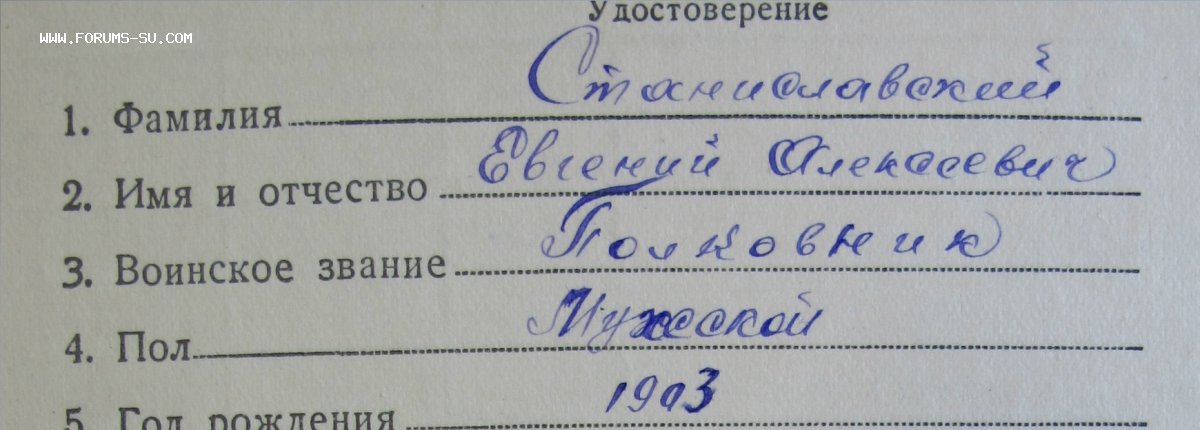 Удостоверение
WWW.FORUMS-SU.COM
1. Фамилия Станиславский
2. Имя и отчество Евгений Алексеевич
3. Воинское звание Полковник
4. Пол Мужской
5. Год рождения 1903